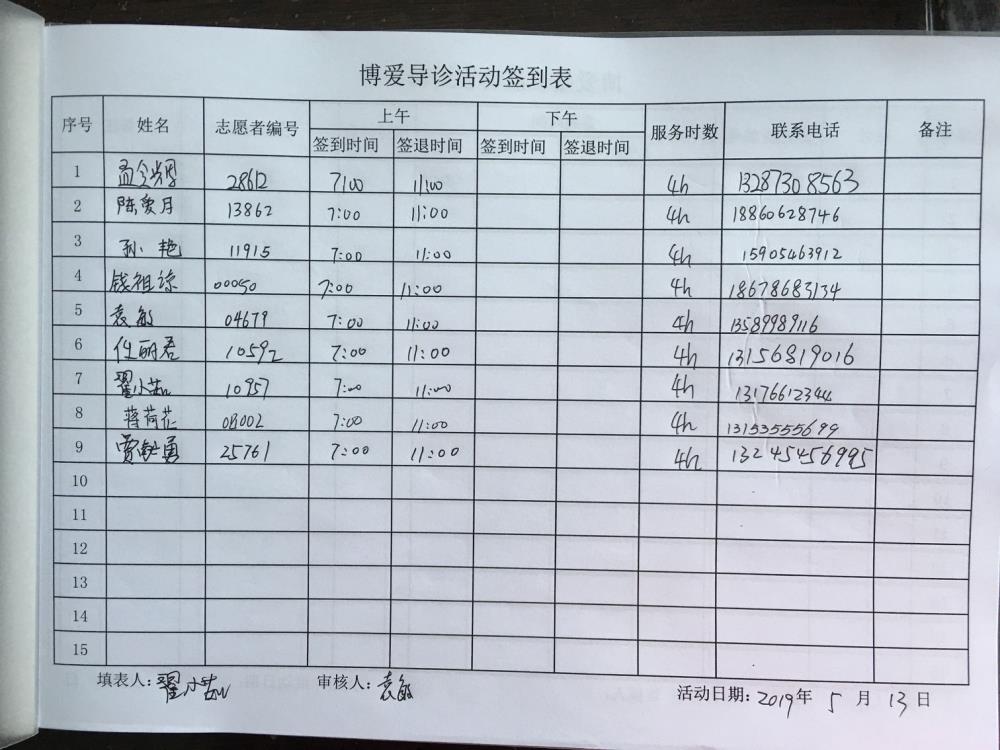 博爱导诊活动签到表
序号 姓名 志愿者编号 上午 下午 服务时数 联系电话 备注
签到时间 签退时间 签到时间 签退时间
1 28612 7:00 11:00 4h 13287308563
2 陈爱月 13862 7:00 11:00 4h 18860628746
3 孙艳 11915 7:00 11:00 4h 15905463912
4 钱祖琼 00050 7:00 11:00 4h 18678683134
5 袁敏 04679 7:00 11:00 4h 13589989116
6 任丽君 10592 7:00 11:00 4h 13156819016
7 翟小茹 10957 7:00 11:00 4h 13176612344
8 蒋荷花 08002 7:00 11:00 4h 13153555699
9 25761 7:00 11:00 4h 13245456995
10
11
12
13
14
15
填表人:翟小茹 审核人:袁敏 活动日期:2019年 5 月 13 日